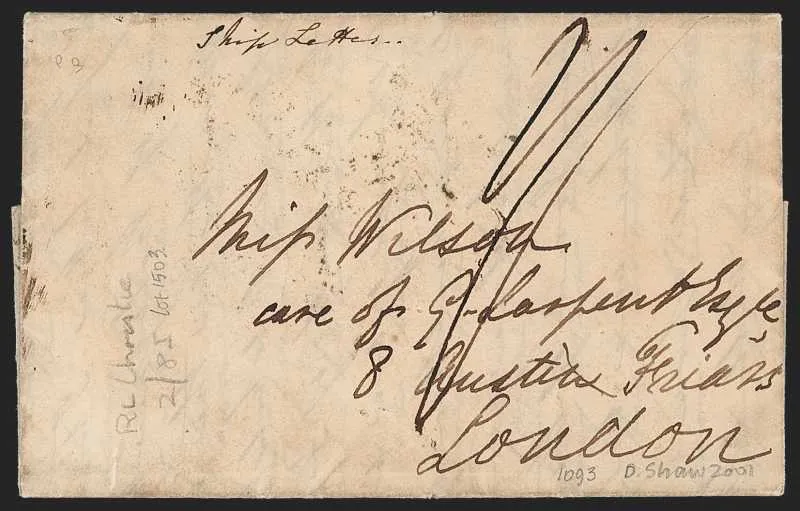 Ship Letter..
Miss Wilson
care of G. Larpent Esqre
8 Austin Friars
London
RL Christie
2/85 lot 1503
1093 D. Shaw 2001